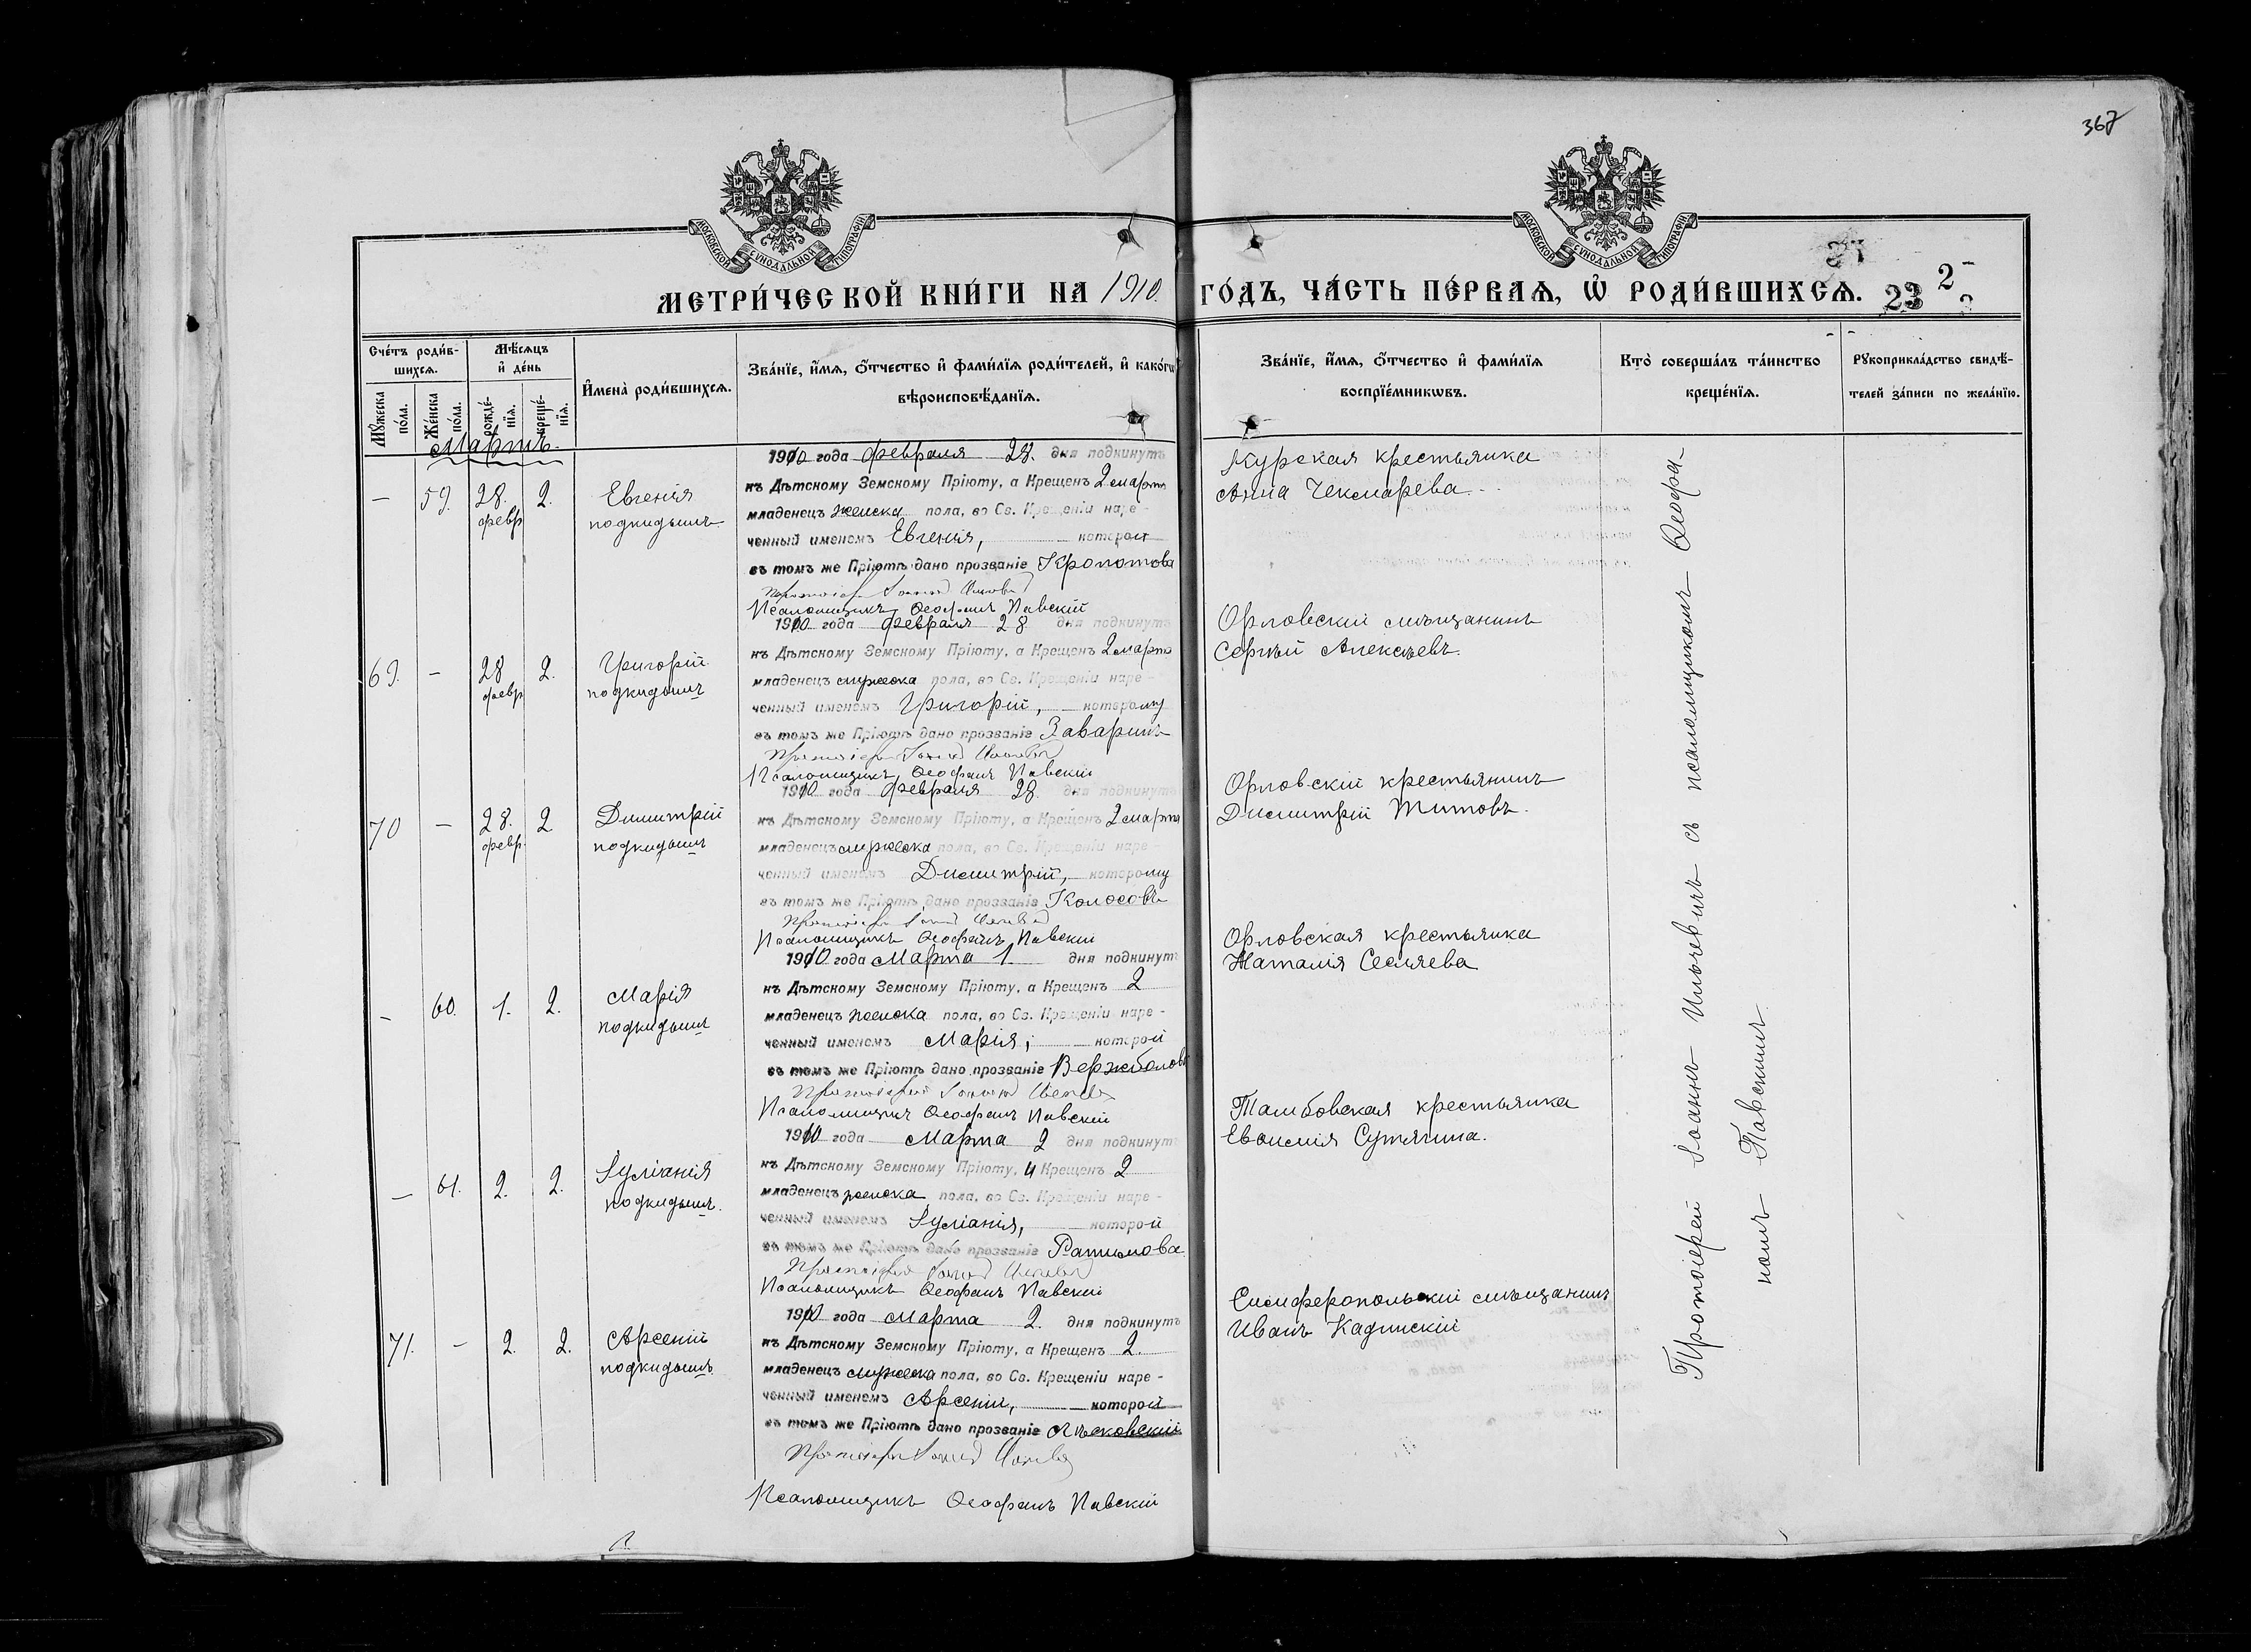 367
МОСКОВСКОЙ СУНОДАЛЬНОЙ ТИПОГРАФІИ
МОСКОВСКОЙ СУНОДАЛЬНОЙ ТИПОГРАФІИ
МЕТРИ́ЧЕСКОЙ КНИ́ГИ НА 1910 ГО́ДЪ, ЧА́СТЬ ПЕ́РВАЯ, Ѡ РОДИ́ВШИХСЯ. 23 2
Сче́тъ роди́в-
шихся.
Мꙋ́жеска по́ла.
Же́нска по́ла.
Мѣ́сяцъ и҆ де́нь
рожде́-
нїя.
креще́-
нїя.
И҆мена̀ роди́вшихся.
Зва́нїе, и҆́мя, ѻ҆́тчество и҆ фами́лїя роди́телей, и҆ како́гѡ
вѣроисповѣ́данїя.
Зва́нїе, и҆́мя, ѻ҆́тчество и҆ фами́лїя
воспрїе́мникѡвъ.
Кто̀ соверша́лъ та́инство
креще́нїя.
Рꙋкоприкла́дство свидѣ́-
телей за́писи по жела́нїю.
Мартъ.
— 59. 28. февр 2. Евгенія
подкидышъ
1910 года февраля 28. дня подкинутъ
къ Дѣтскому Земскому Пріюту, а Крещенъ 2 марта
младенецъ женска пола, во Св. Крещеніи наре-
ченный именемъ Евгенія, которой
въ томъ же Пріютѣ дано прозваніе Кропотова
Протоіерей Іоаннъ
Псаломщикъ Ѳеофанъ Павскій
Курская крестьянка
Анна Чекмарева.
69. — 28 февр 2. Григорій
подкидышъ
1910 года февраля 28 дня подкинутъ
къ Дѣтскому Земскому Пріюту, а Крещенъ 2 марта
младенецъ мужеска пола, во Св. Крещеніи наре-
ченный именемъ Григорій, которому
въ томъ же Пріютѣ дано прозваніе Заваринъ
Протоіерей Іоаннъ
Псаломщикъ Ѳеофанъ Павскій
Орловскій мѣщанинъ
Сергѣй Алексѣевъ.
70 — 28. февр. 2 Димитрій
подкидышъ
1910 года февраля 28 дня подкинутъ
къ Дѣтскому Земскому Пріюту, а Крещенъ 2 марта
младенецъ мужеска пола, во Св. Крещеніи наре-
ченный именемъ Димитрій, которому
въ томъ же Пріютѣ дано прозваніе Колосовъ
Протоіерей Іоаннъ
Псаломщикъ Ѳеофанъ Павскій
Орловскій крестьянинъ
Димитрій Титовъ.
— 60. 1. 2. Марія
подкидышъ
1910 года Марта 1 дня подкинутъ
къ Дѣтскому Земскому Пріюту, а Крещенъ 2
младенецъ женска пола, во Св. Крещеніи наре-
ченный именемъ Марія, которой
въ томъ же Пріютѣ дано прозваніе
Протоіерей Іоаннъ
Псаломщикъ Ѳеофанъ Павскій
Орловская крестьянка
Наталія
— 61. 2. 2. Іуліанія
подкидышъ.
1910 года Марта 2 дня подкинутъ
къ Дѣтскому Земскому Пріюту, и Крещенъ 2
младенецъ женска пола, во Св. Крещеніи наре-
ченный именемъ Іуліанія, которой
въ томъ же Пріютѣ дано прозваніе
Протоіерей Іоаннъ
Псаломщикъ Ѳеофанъ Павскій
Тамбовская крестьянка
Евѳимія Сутягина.
71. — 2. 2. Арсеній
подкидышъ
1910 года Марта 2. дня подкинутъ
къ Дѣтскому Земскому Пріюту, а Крещенъ 2.
младенецъ мужеска пола, во Св. Крещеніи наре-
ченный именемъ Арсеній, которой
въ томъ же Пріютѣ дано прозваніе
Протоіерей Іоаннъ
Псаломщикъ Ѳеофанъ Павскій
Симферопольскій мѣщанинъ
Иванъ Кадинскій
Протоіерей Іоаннъ Ильевичъ съ псаломщикомъ Ѳеофа-
номъ Павскимъ.